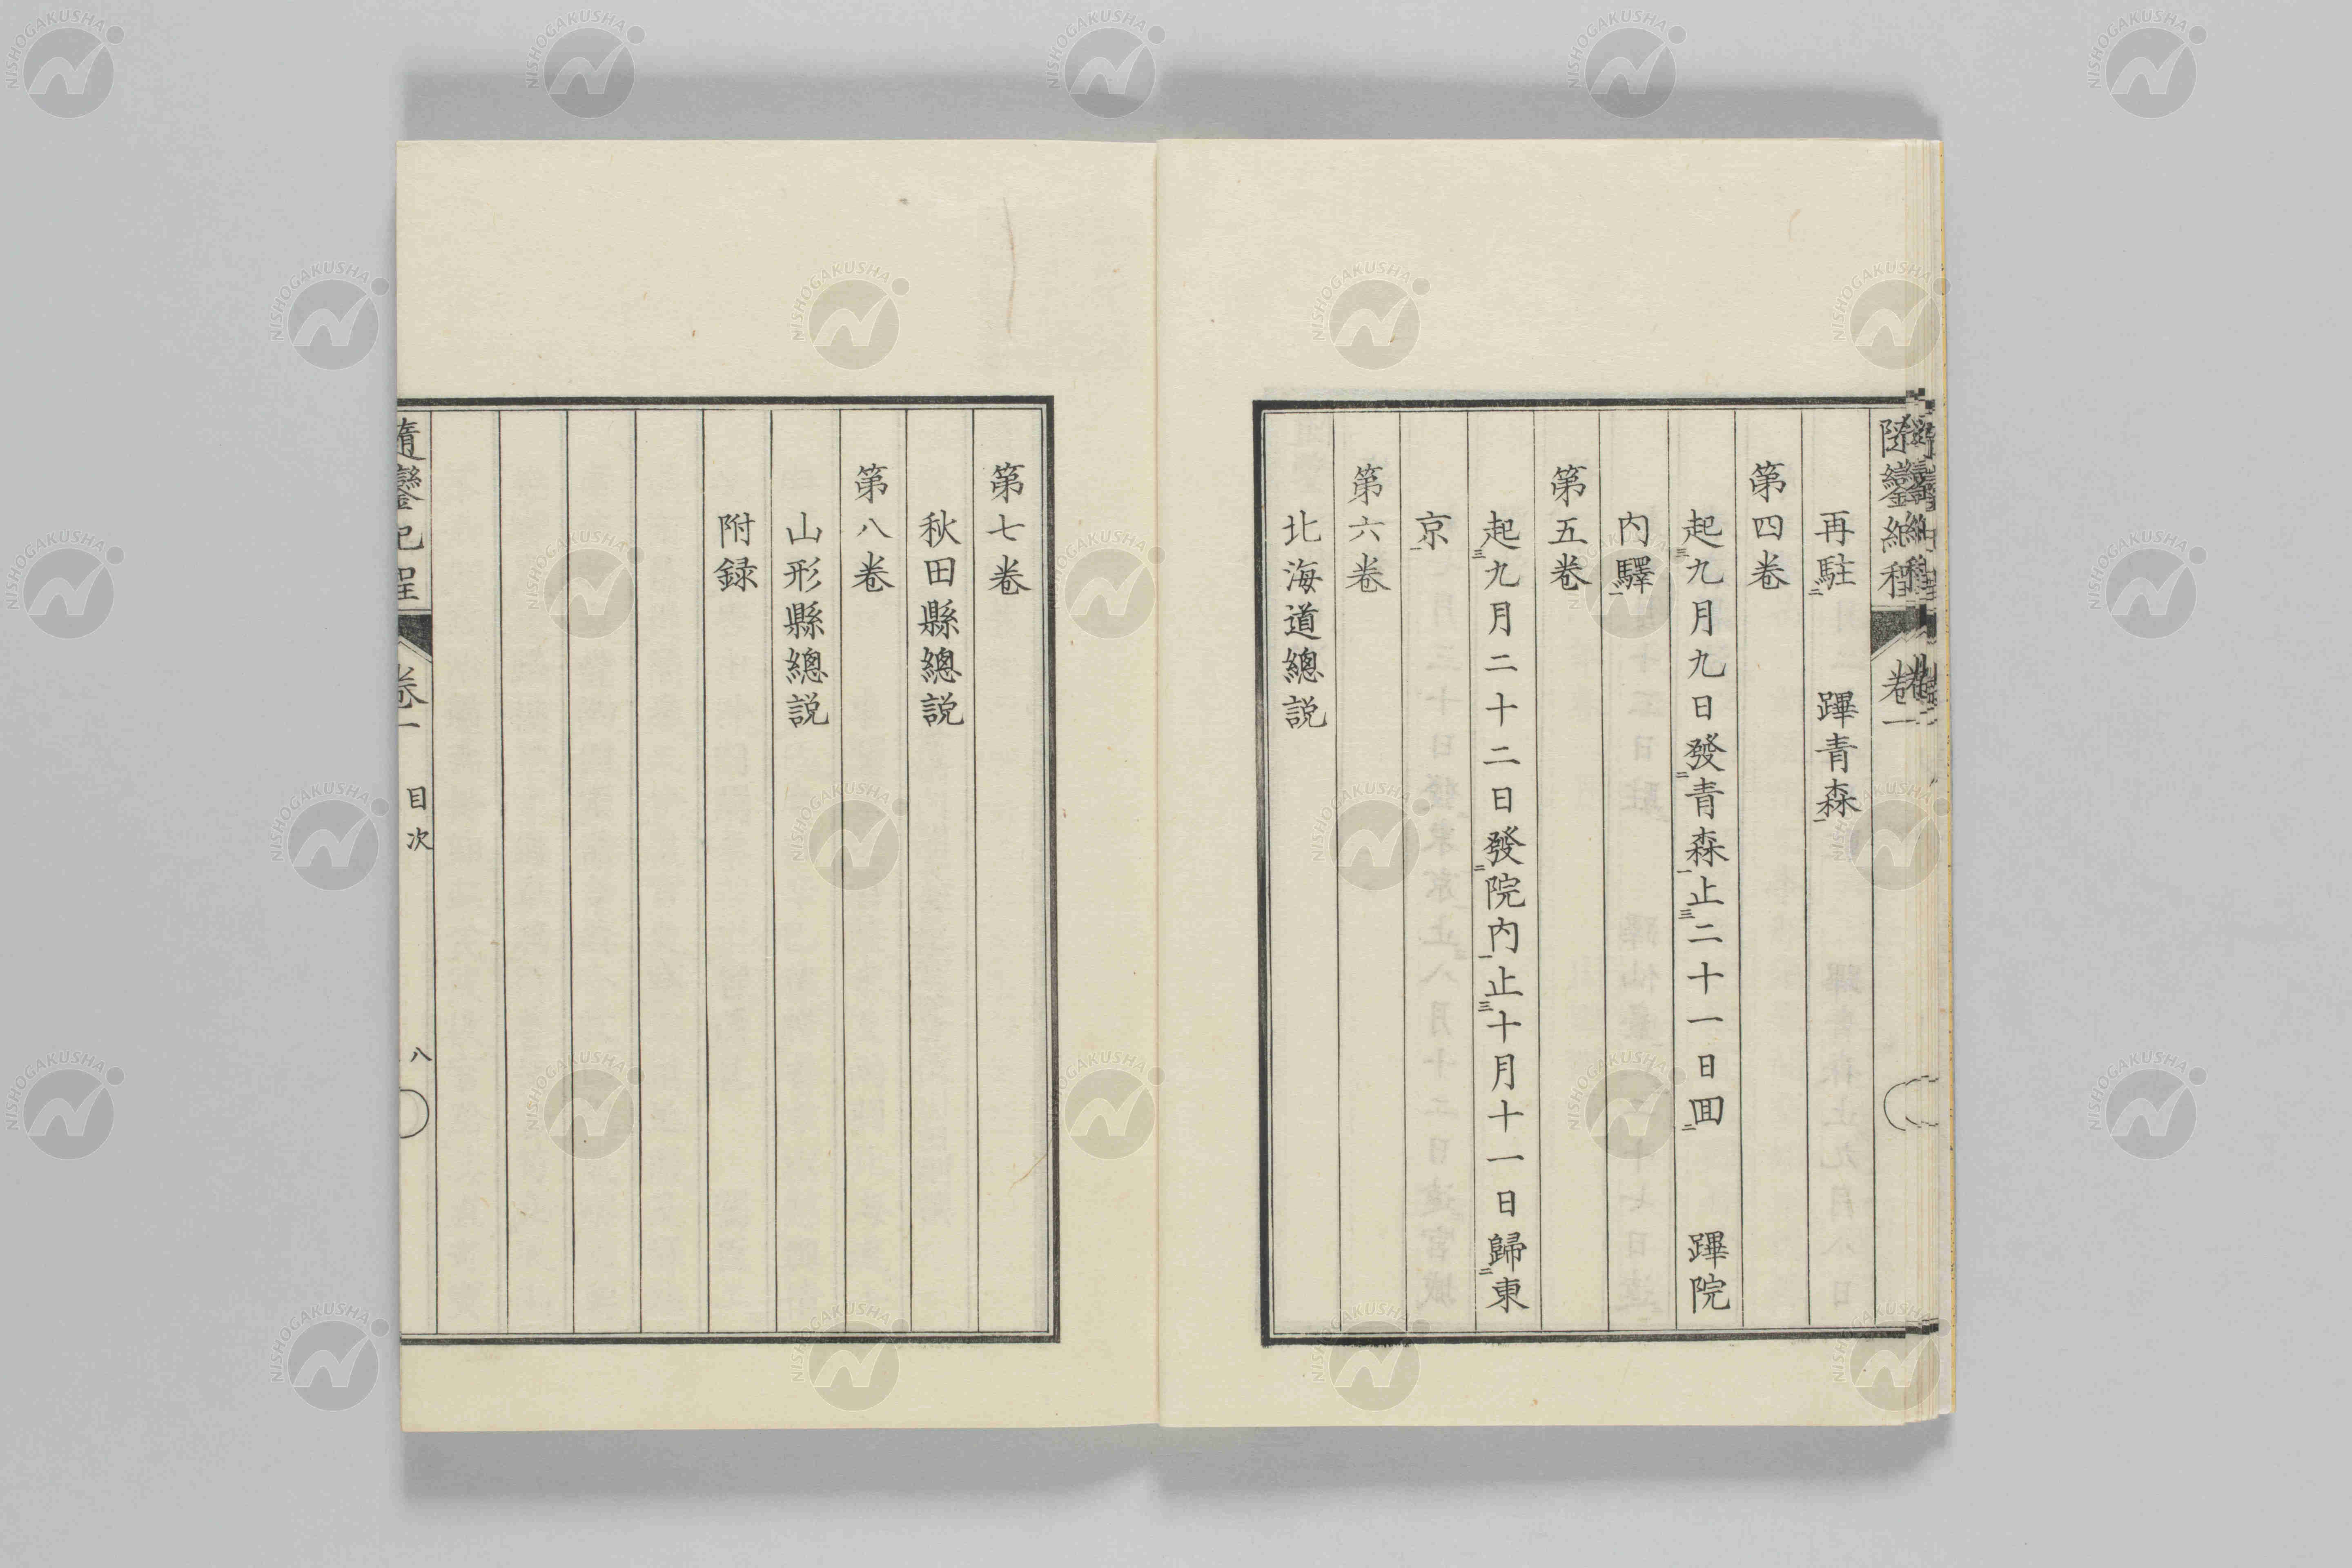 隨鑾紀程 卷一
再駐二 蹕青森一
第四卷
起三九月九日發二青森一止三二十一日囬二 蹕院
内驛一
第五卷
起三九月二十二日發二院内一止三十月十一日歸二東
京一
第六卷
北海道總説
第七卷
秋田縣總説
第八卷
山形縣總説
附録
隨鑾紀程 卷一 目次 八
NISHOGAKUSHA